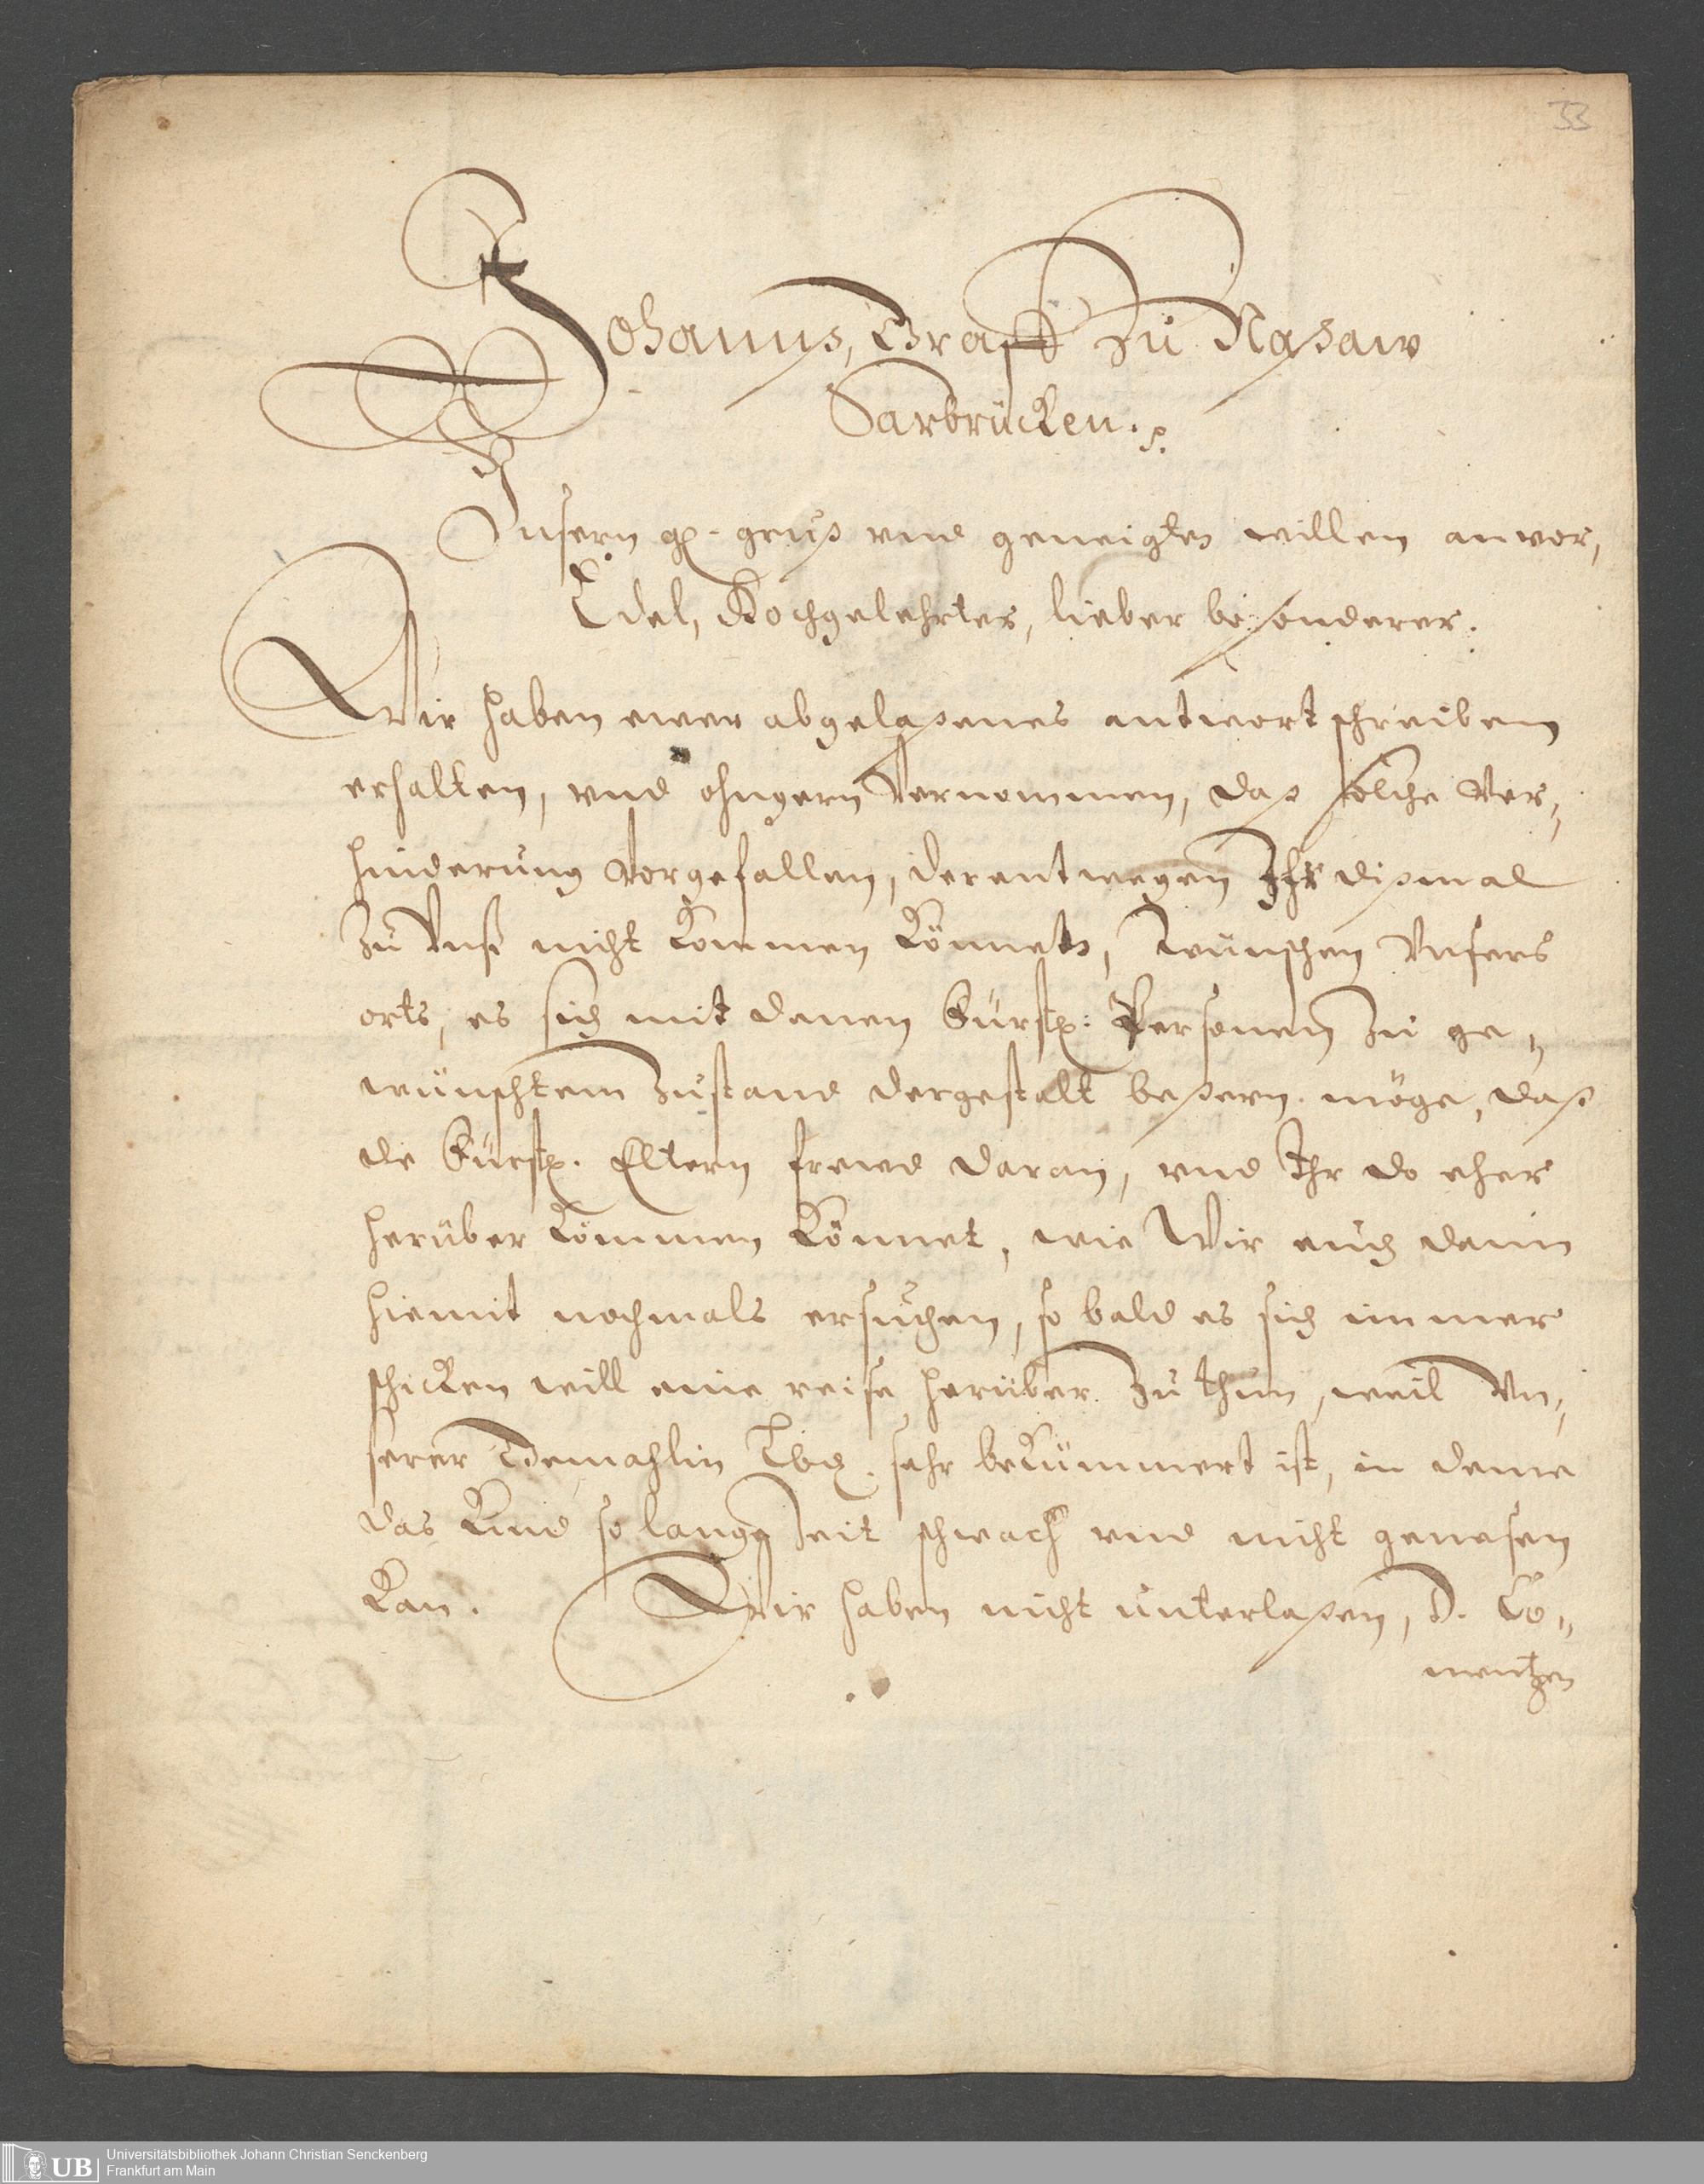 33
Johannß, Graff zu Naßaw
Sarbrücken. p.
Unsern gn. gruß vnd geneigten willen anvor,
Edel, Hochgelehrter, lieber besonderer.
Wir haben ewer abgelaßenes antwort schreiben
erhalten, vnd ohngern Vernommen, daß solche Ver„
hinderung Vorgefallen, derentwegen Ihr dißmal
zu Vnß nicht kommen könnet, wünschen Vnsers
orts, es sich mit denen Fürstl: Personen zu ge„
wünschtem zustand dergestalt beßern möge, daß
die Fürstl. Eltern frewd daran, vnd Ihr do eher
herüber kommen könnet, wie Wir euch dann
hiemit nochmals ersuchen, so bald es sich immer
schicken will eine reise herüber zu thun, weil Vn„
serer Gemahlin Lbd. sehr bekümmert ist, in deme
das Kind so lange zeit schwach vnd nicht genesen
kan. Wir haben nicht unterlaßen, D. Lo„